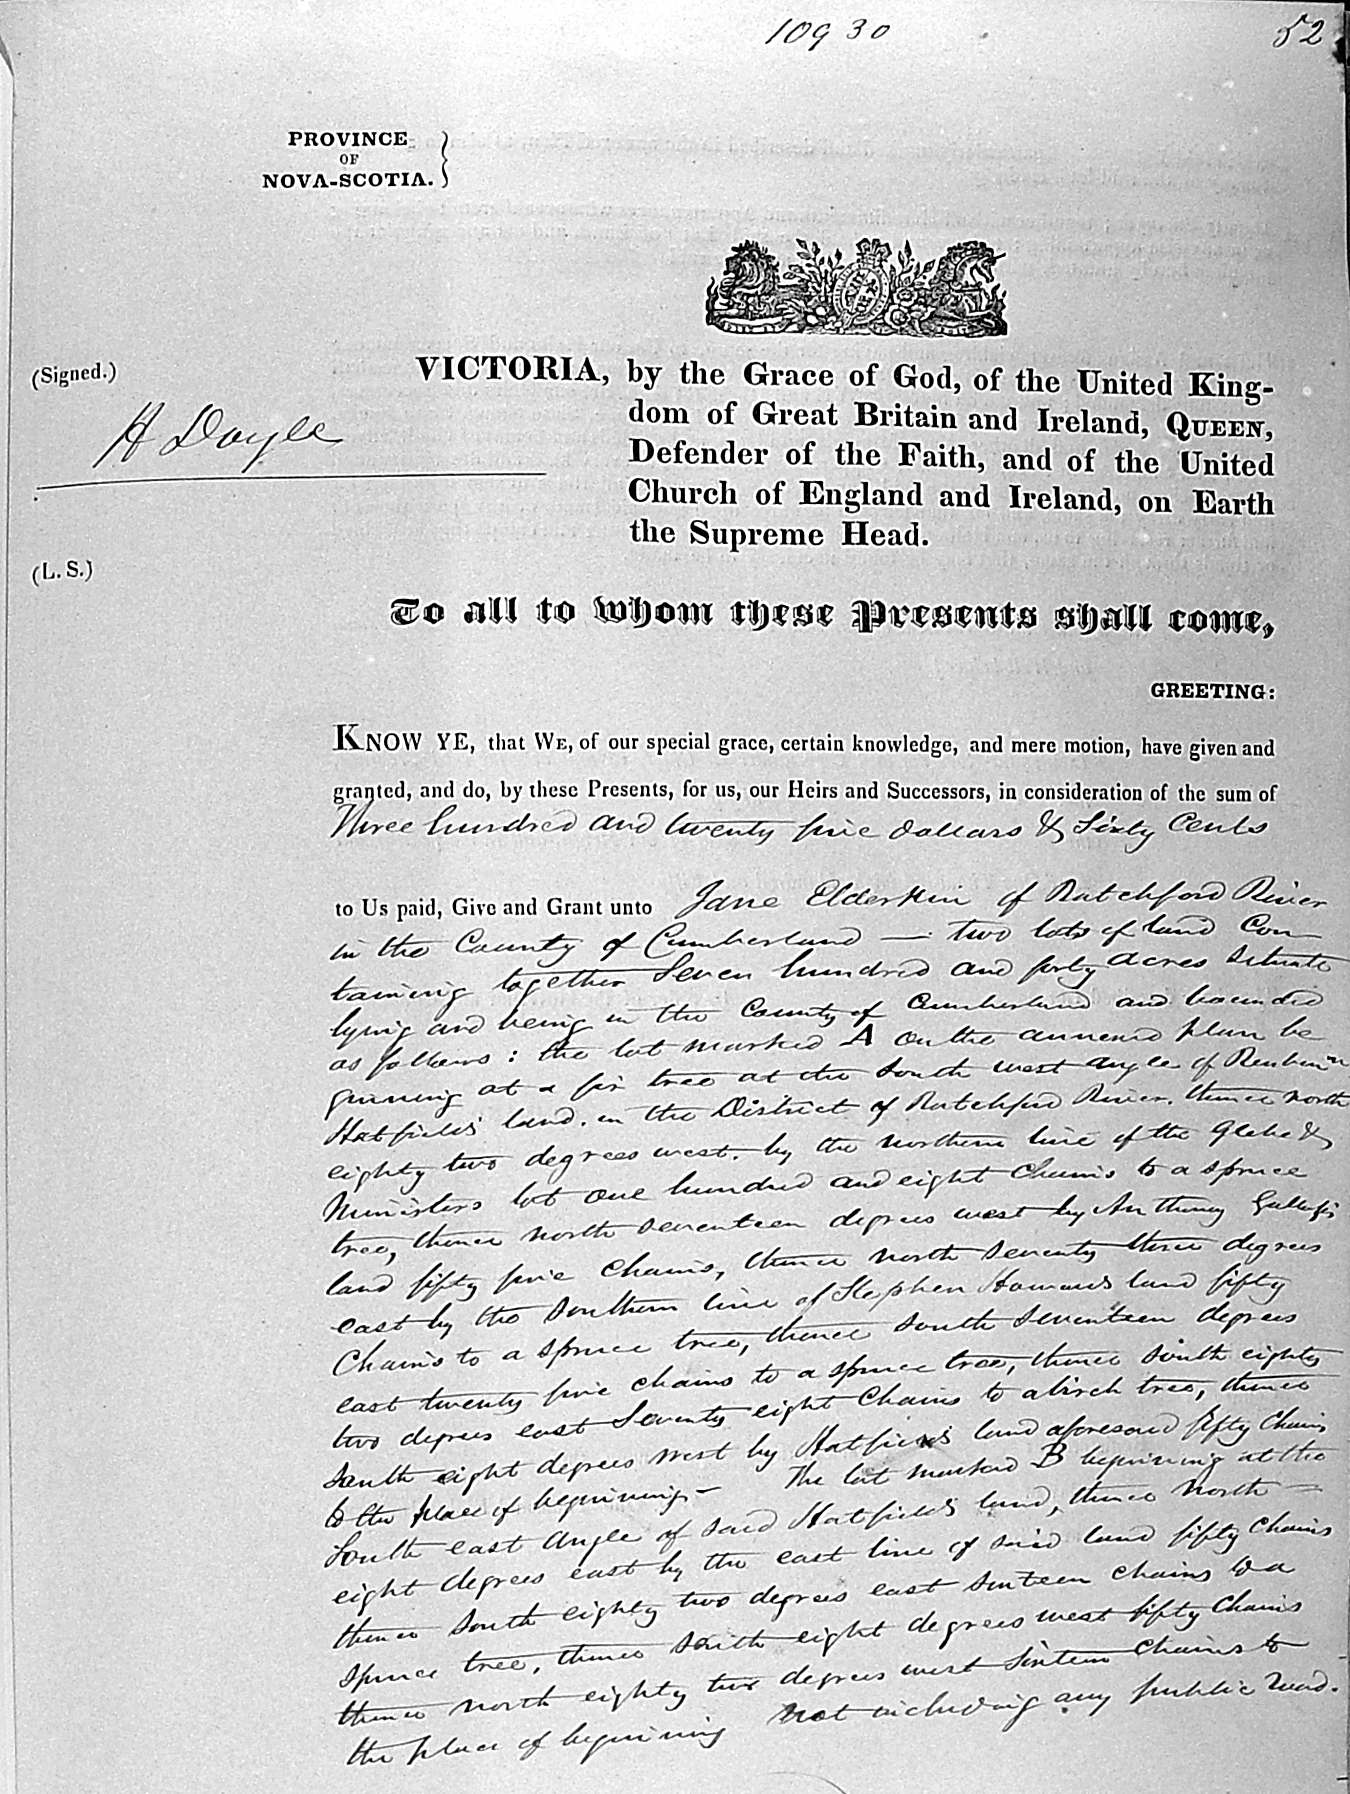 10930
52
PROVINCE
OF
NOVA-SCOTIA.
(Signed.)
H Doyle
(L. S.)
VICTORIA, by the Grace of God, of the United King-
dom of Great Britain and Ireland, QUEEN,
Defender of the Faith, and of the United
Church of England and Ireland, on Earth
the Supreme Head.
To all to whom these Presents shall come,
GREETING:
KNOW YE, that WE, of our special grace, certain knowledge, and mere motion, have given and
granted, and do, by these Presents, for us, our Heirs and Successors, in consideration of the sum of
Three hundred and twenty five dollars & Sixty Cents
to Us paid, Give and Grant unto Jane Elderkin of Ratchford River
in the County of Cumberland — two lots of land Con
taining together Seven hundred and forty acres situate
lying and being in the County of Cumberland and bounded
as follows: the lot marked A on the annexed plan be
ginning at a fir tree at the south west angle of Reuben
Hatfields land. in the District of Ratchford River. thence north
eighty two degrees west. by the northern line of the Glebe &
Ministers lot one hundred and eight Chains to a spruce
tree, thence north seventeen degrees west by Anthony
land fifty five chains, thence north seventy three degrees
east by the southern line of Stephen land fifty
Chains to a spruce tree, thence south seventeen degrees
east twenty five chains to a spruce tree, thence south eighty
two degrees east Seventy eight Chains to a birch tree, thence
south eight degrees west by Hatfields land aforesaid fifty Chains
to the place of beginning — The lot marked B beginning at the
South east angle of said Hatfields land, thence north
eight degrees east by the east line of said land fifty chains
thence south eighty two degrees east sixteen chains to a
spruce tree, thence south eight degrees west fifty Chains
thence north eighty two degrees west sixteen chains to
the place of beginning not including any public road.